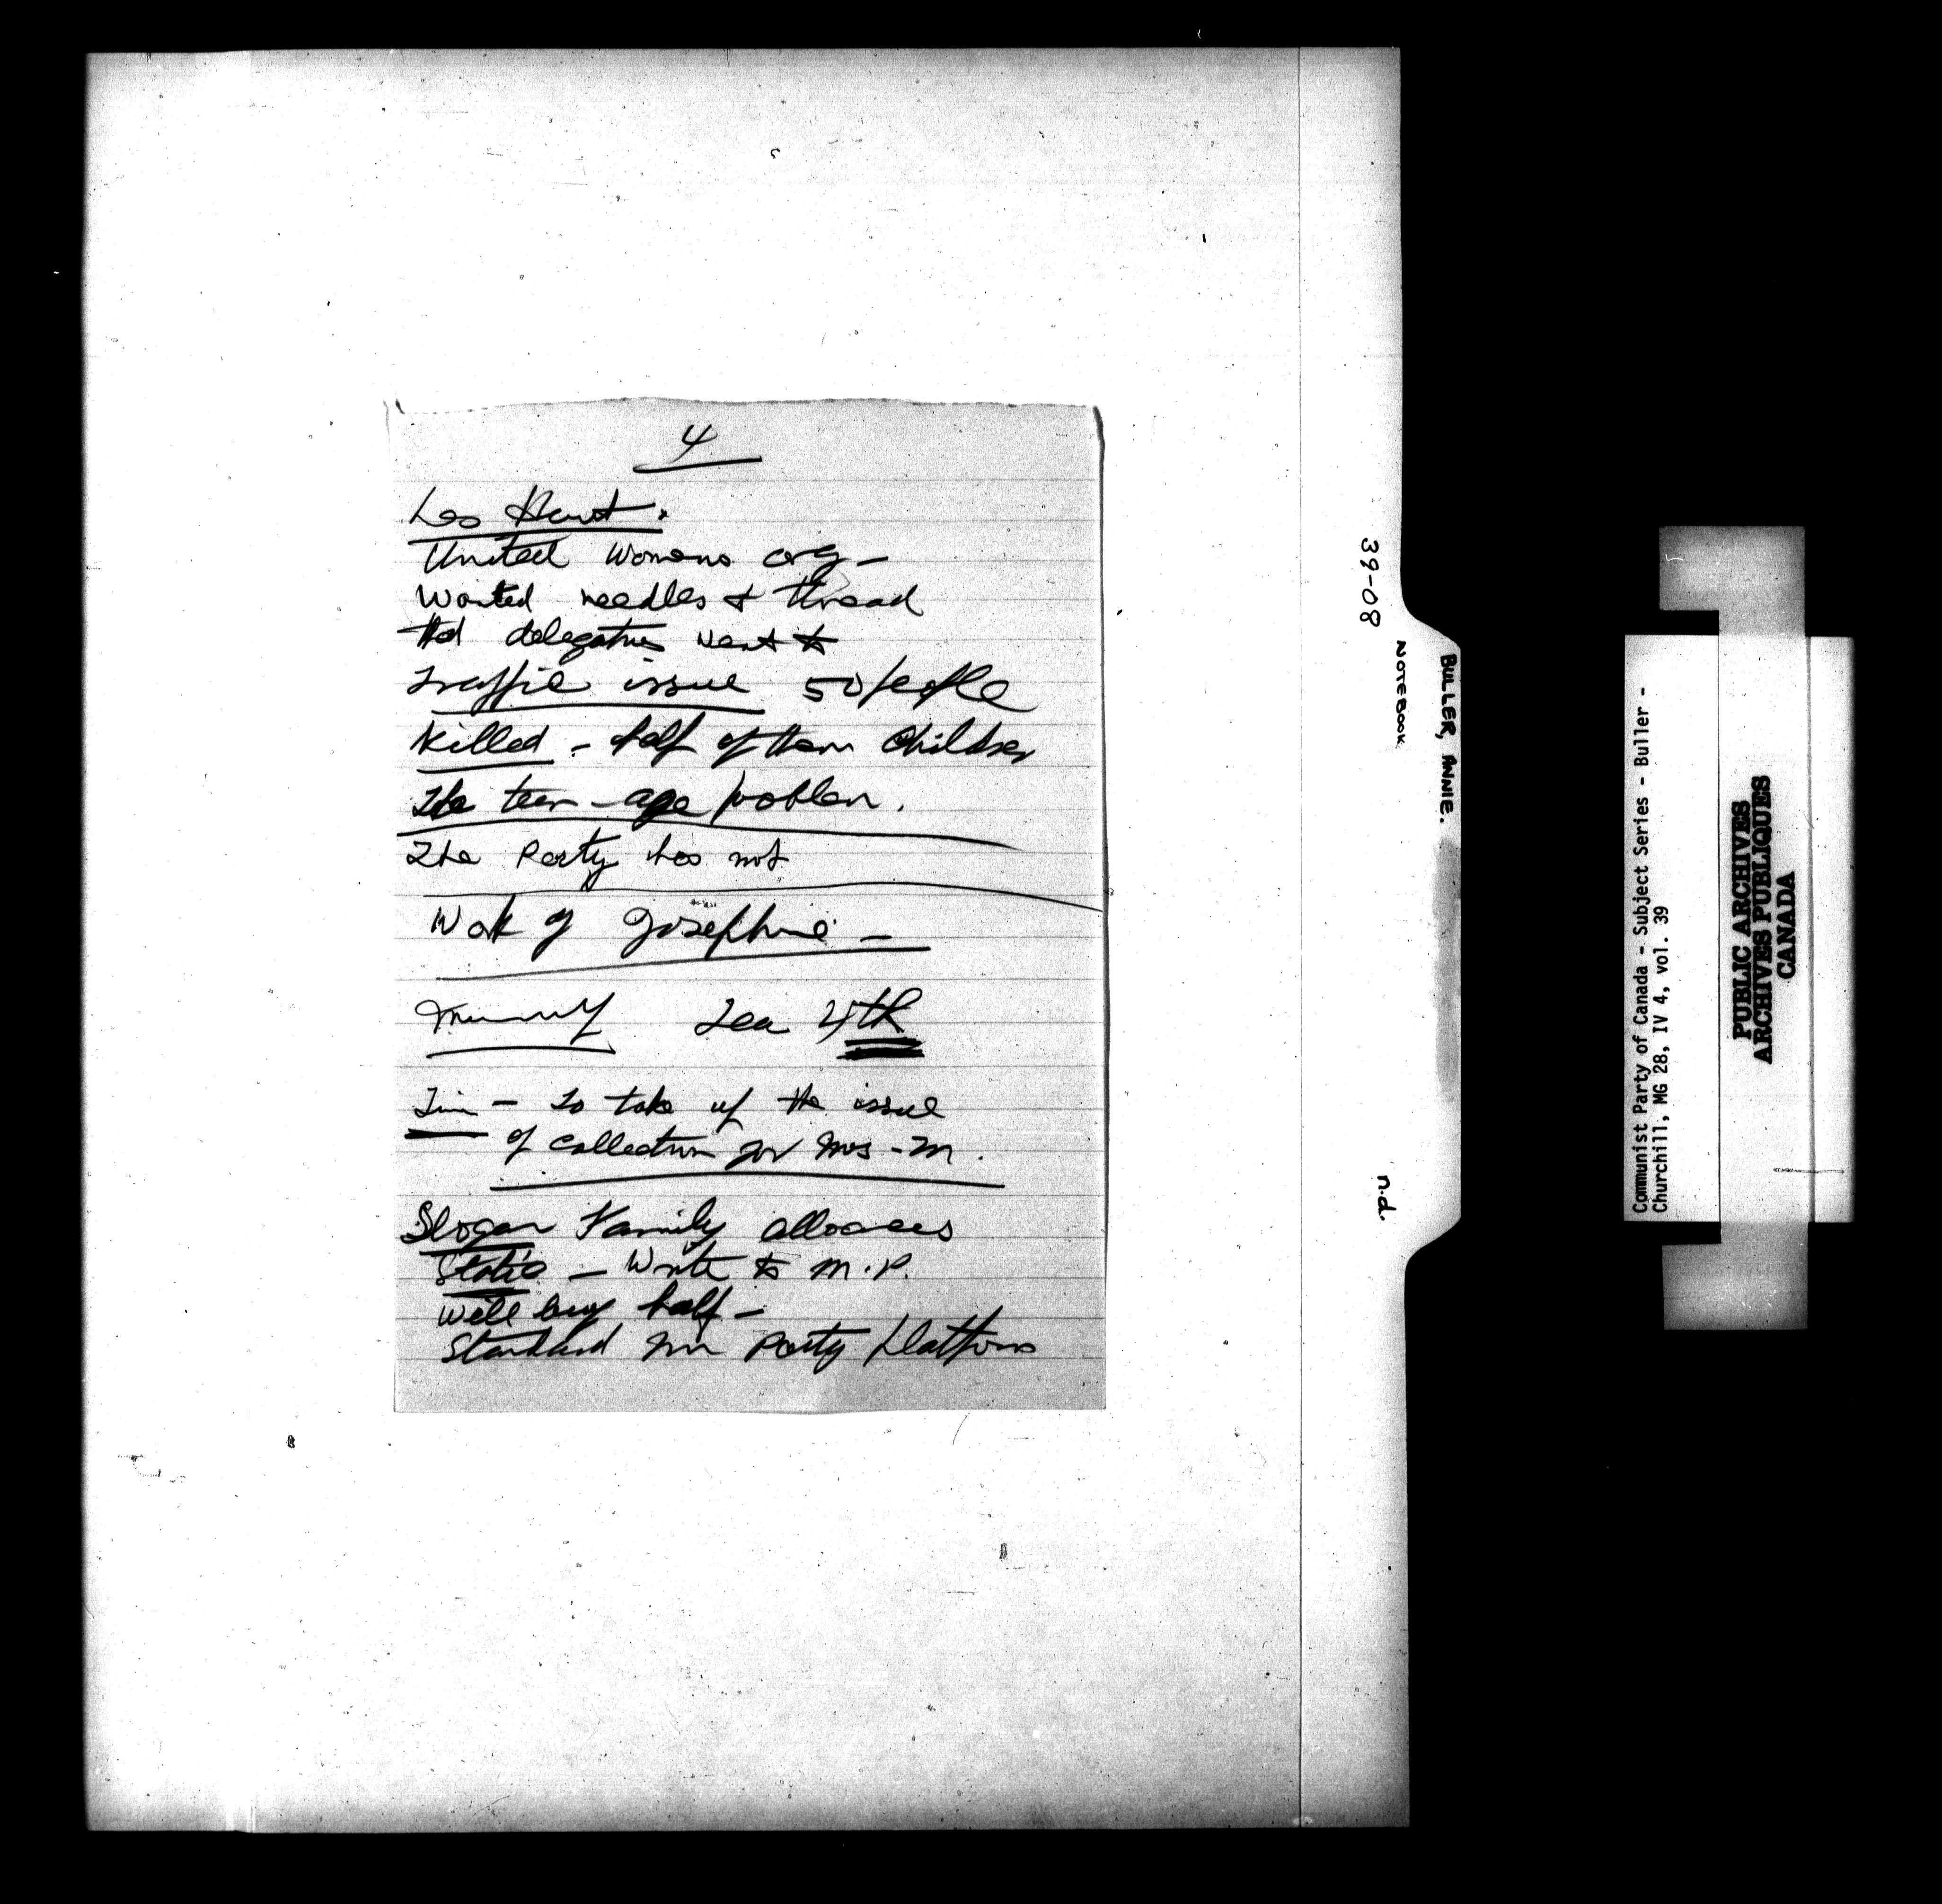 4
Les Hunt.
United Womens org -
Wanted needles & thread
delegation went to
Traffic issue 50 people
killed - half of them Children
The teen-age problem.
The Party has not
Work of Josephine -
Tea 4th
Jim - to take up the issue
of collection for Mrs - M.
Slogan Family allowances
- Write to M.P.
Will buy half -
Standard in Party platform
39-08
NOTEBOOK
BULLER, ANNIE.
n.d.
Communist Party of Canada - Subject Series - Buller -
Churchill, MG 28, IV 4, vol. 39
PUBLIC ARCHIVES
ARCHIVES PUBLIQUES
CANADA